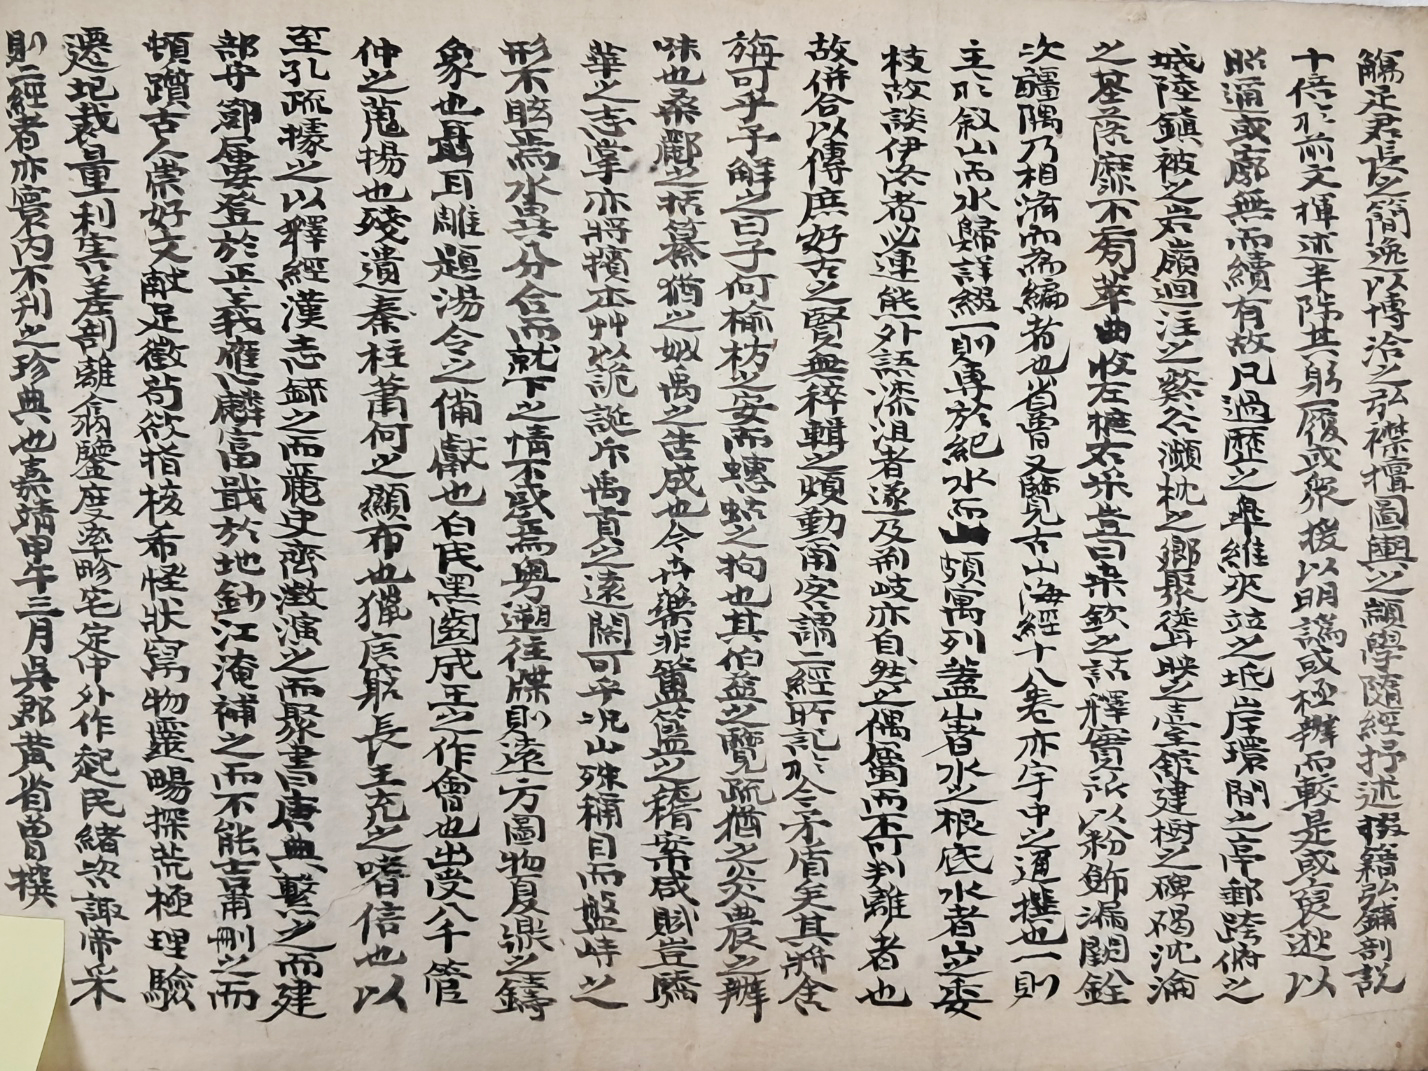 觴足君長之簡逸以博洽之弘襟擅圖輿之顓學隨經抒述掇籍弘鋪剖說
十倍於前文揮述半陟其躬履或衆援以明譌或極辯而較是或裒逖以
昭通或廓無而續有故凡過歷之皐維夾竝之坻岸環間之亭郵跨俯之
城陸鎮被之岩嶺迴注之谿谷瀕枕之鄉聚聳映之臺館建樹之碑碣沈淪
之基落靡不旁萃曲收左摭右采豈曰桒欽之詁釋實所以粉飾漏闕銓
次疆隅乃相濟而為編者也省曾又覽古山海經十八卷亦宇中之通撰也一則
主於敘山而水歸詳綴一則專於紀水而山頗寓列蓋山者水之根底水者山之委
枝故談伊洛者必連熊外語漆沮者遂及荊岐亦自然之偶屬而不可判離者也
故併合以傳庶好古之賢無稡輯之煩動甯客謂二經所記於今矛盾矣其將舍
旃可乎予解之曰子何榆枋之安而蟪蛄之拘也其伯益之覽疏猶之炎農之辨
味也桑酈之括纂猶之姒禹之告成也今卉藥非簠簋之稽案咸賦豈驕
華之志掌亦將擯本艸以詭誕斥禹貢之遠闊可乎况山殊稱目而盤峙之
形不眩焉水異分合而就下之情不惑焉粵遡往牒則遠方圖物夏鼎之鑄
象也聶耳雕題湯令之備獻也白民黑齒成王之作會也出受八千管
仲之蒐揚也殘遺秦柱蕭何之顯布也獵屈窮長王充之嗜信也以
至孔疏據之以釋經漢志錄之而麗史齊澂演之而聚書唐典繫之而建
部守鄣屢登於正義應麟富戢於地鈔江淹補之而不能吉甫刪之而
頓躓古人崇好文獻足徵苟欲指核希怪狀寫物靈暢探荒極理驗
遷圮裁量利害差剖離合酌鑒度率畛宅定中外作起民緒咨諏帝采
則二經者亦寰內不刋之珍典也嘉靖甲午三月吳郡黃省曾撰